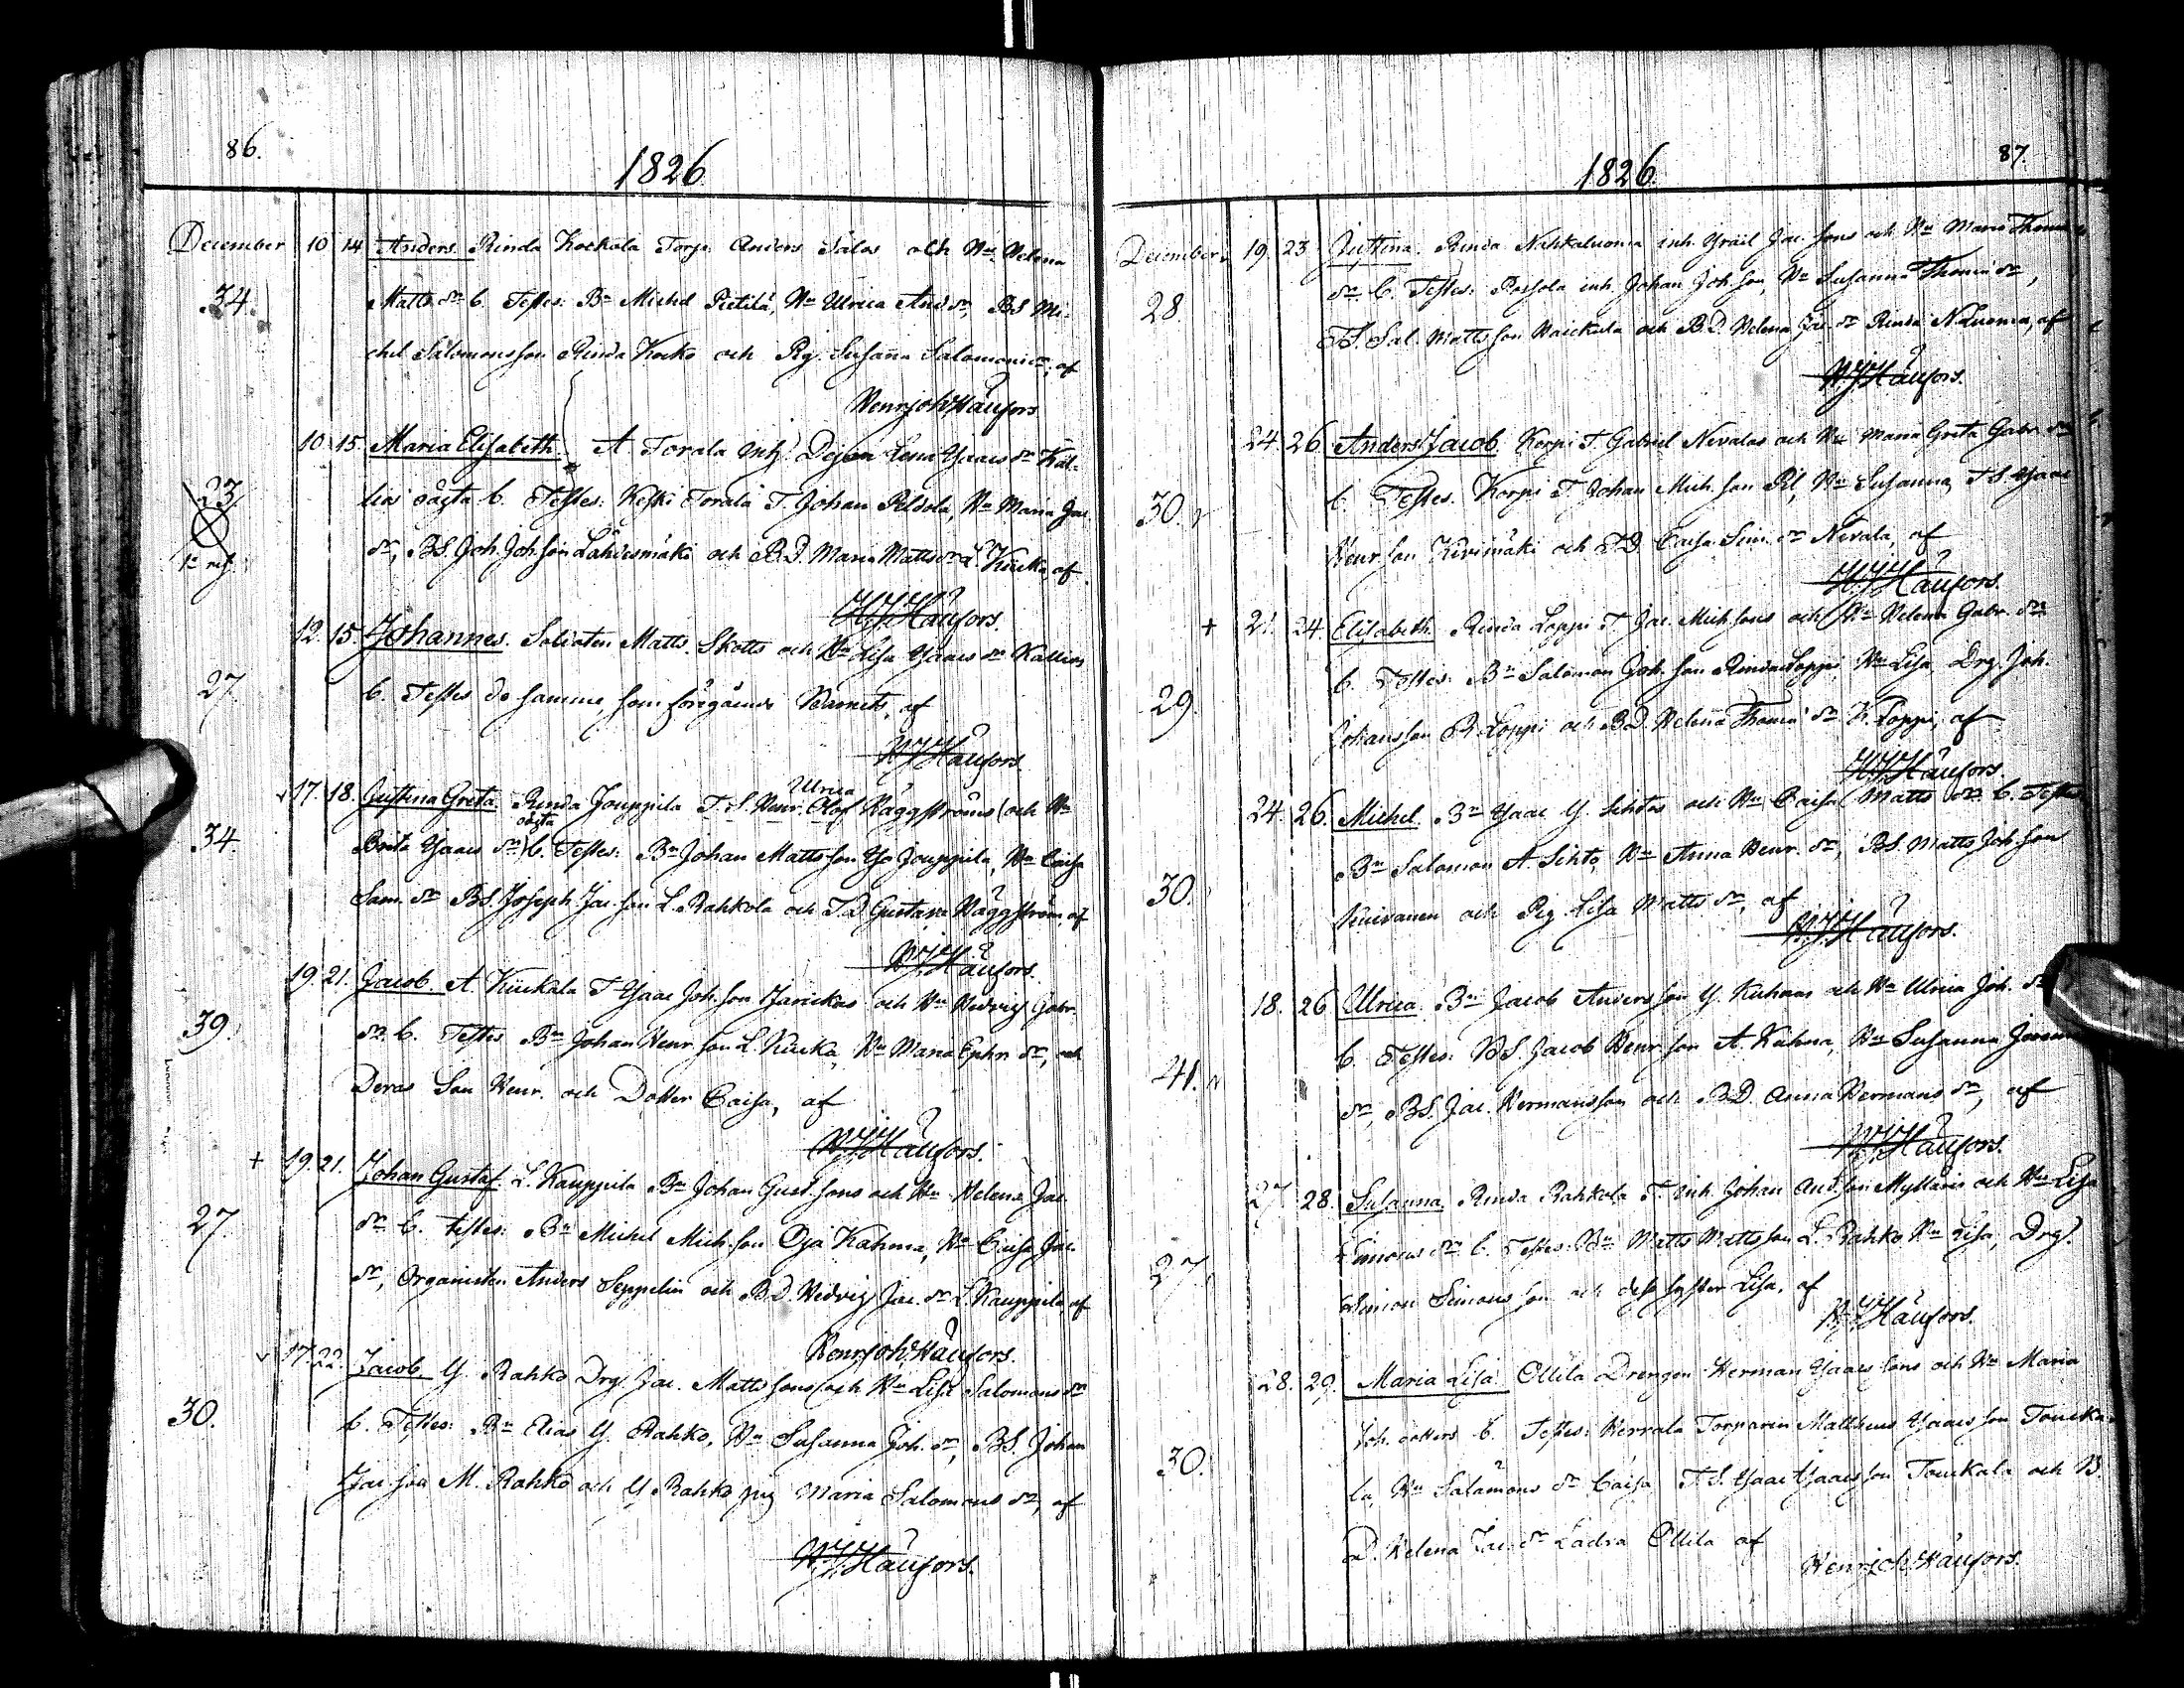 86.
1826
December 10 14 Anders. Rinda Kockola Torp. Anders Salos och Hu Helena
34. Matts dr b. Testes: Bn Michel Pietilä, Hu Ulrica And. dr, BS Mi-
chel Salomonsson Rinda Kocko och Pig. Susanna Salomons dr, af
Henr Joh Håufors
10. 15. Maria Elisabeth. A Torala inh. Dejan Lena Isaacs dr Kal-
23 lias oägta b. Testes: Keski Torala T. Johan Peldola, Hu Maria Jac.
dr, BS. Joh. Joh. son Lähdesmäki och BD. Maria Matts dr L. Kiicka, af
H J Håufors.
12. 15. Johannes. Soldaten Matts Skotts och Hu Lisa Isaacs dr Kallios
27 b. Testes de samme, som föregående Barnets, af
H J Håufors
17. 18. Justina Greta Rinda Jouppila T. S. Henr. Olof Häggströms (och Hu
Ulrica
oägta
34. Brita Isaacs dr) b. Testes: Bn Johan Matts son Jouppila, Hu Caisa
Sam. dr BS. Joseph Jac. son L. Rahkola och TD Gustava Häggström, af
H J Håufors.
19. 21. Jacob. A. Kiickala T Isaac Joh. son och Hu Hedvig Gabr.
39. dr b. Testes Bn Johan Henr. son L. Kiicka, Hu Maria Ephr. dr, och
Deras Son Henr. och Dotter Caisa, af
H J Håufors.
+ 19. 21. Johan Gustaf L. Kauppila Bn Johan Gust. sons och Hu Helena Jac.
27 dr b. testes: Bn Michel Mich. son Oja Kahma, Hu Caisa Jac.
dr, Organisten Anders Seppelin och BD. Hedvig Jac. dr L. Kauppila, af
Henr Joh Håufors.
17. 22. Jacob. Y Rahko Drg. Jac. Matts sons och Hu Lisa Salomons dr
30. b. Testes: Bn Elias Y. Rahko, Hu Susanna Joh. dr, BS. Johan
Jac. son M. Rahko och Y Rahko pig Maria Salomons dr, af
H J Håufors.
87.
1826.
December 19. 23 Justina. Rinda Nahkaluoma inh. Israël Jac. sons och Hu Maria Thom.
28. dr b. Testes: Possola inh. Johan Joh. son, Hu Susanna Thom. dr,
TS. Sal. Matts son Haickola och BD. Helena Jac. dr Rinda N.Luoma, af
H J Håufors.
24. 26. Anders Jacob. Korpi T. Gabriel Nevalas och Hu Maria Greta Gabr. dr
30. b. Testes. Korpi T. Johan Mich. son Hu Susanna, TS. Isaac
Henr. son Kivimäki och TD. Caisa Sim. dr Nevala, af
H J Håufors.
+ 21. 24. Elisabeth. Rinda Loppi T. Jac. Mich. sons och Hu Helena Gabr. dr
29. b. Testes: Bn Salomon Joh. son Rinda Loppi, Hu Lisa, Drg. Joh.
Johans son R Loppi och BD. Helena Thom. dr K. Loppi, af
H J Håufors.
24. 26. Michel. Bn Isaac Y. Sihtos och Hu Caisa Matts dr b. Testes
30. Bn Salomon A. Sihto, Hu Anna Henr. dr, BS. Matts Joh. son
och Pig. Lisa Matts dr, af
H J Håufors.
18. 26 Ulrica. Bn Jacob Anders son Y. Kuhnas och Hu Ulrica Joh. dr
41. b. Testes: BS. Jacob Henr. son A. Kuhna, Hu Susanna
dr, BS. Jac. Hermansson och BD. Anna Hermans dr, af
H J Håufors.
27 28. Susanna. Rinda Rahkola T. inh. Johan And. son Myllaris och Hu Lisa
27. Simons dr b. Testes: Bn Matts Matts son L. Rahko, Hu Lisa, Drg.
Simon Simons son och dess syster Lisa, af
H J Håufors.
28. 29. Maria Lisa. Ollila Drengen Herman Isaacs sons och Hu Maria
Joh. dotters b. Testes: Herrala Torparen Mattheus Isaacs son Toucka-
30. la, Hu Salamons dr Caisa, T. S. Isaac Isaacs son Touckala och B.
D. Helena Jac. dr Ladra Ollila af
Henr Joh. Håufors.